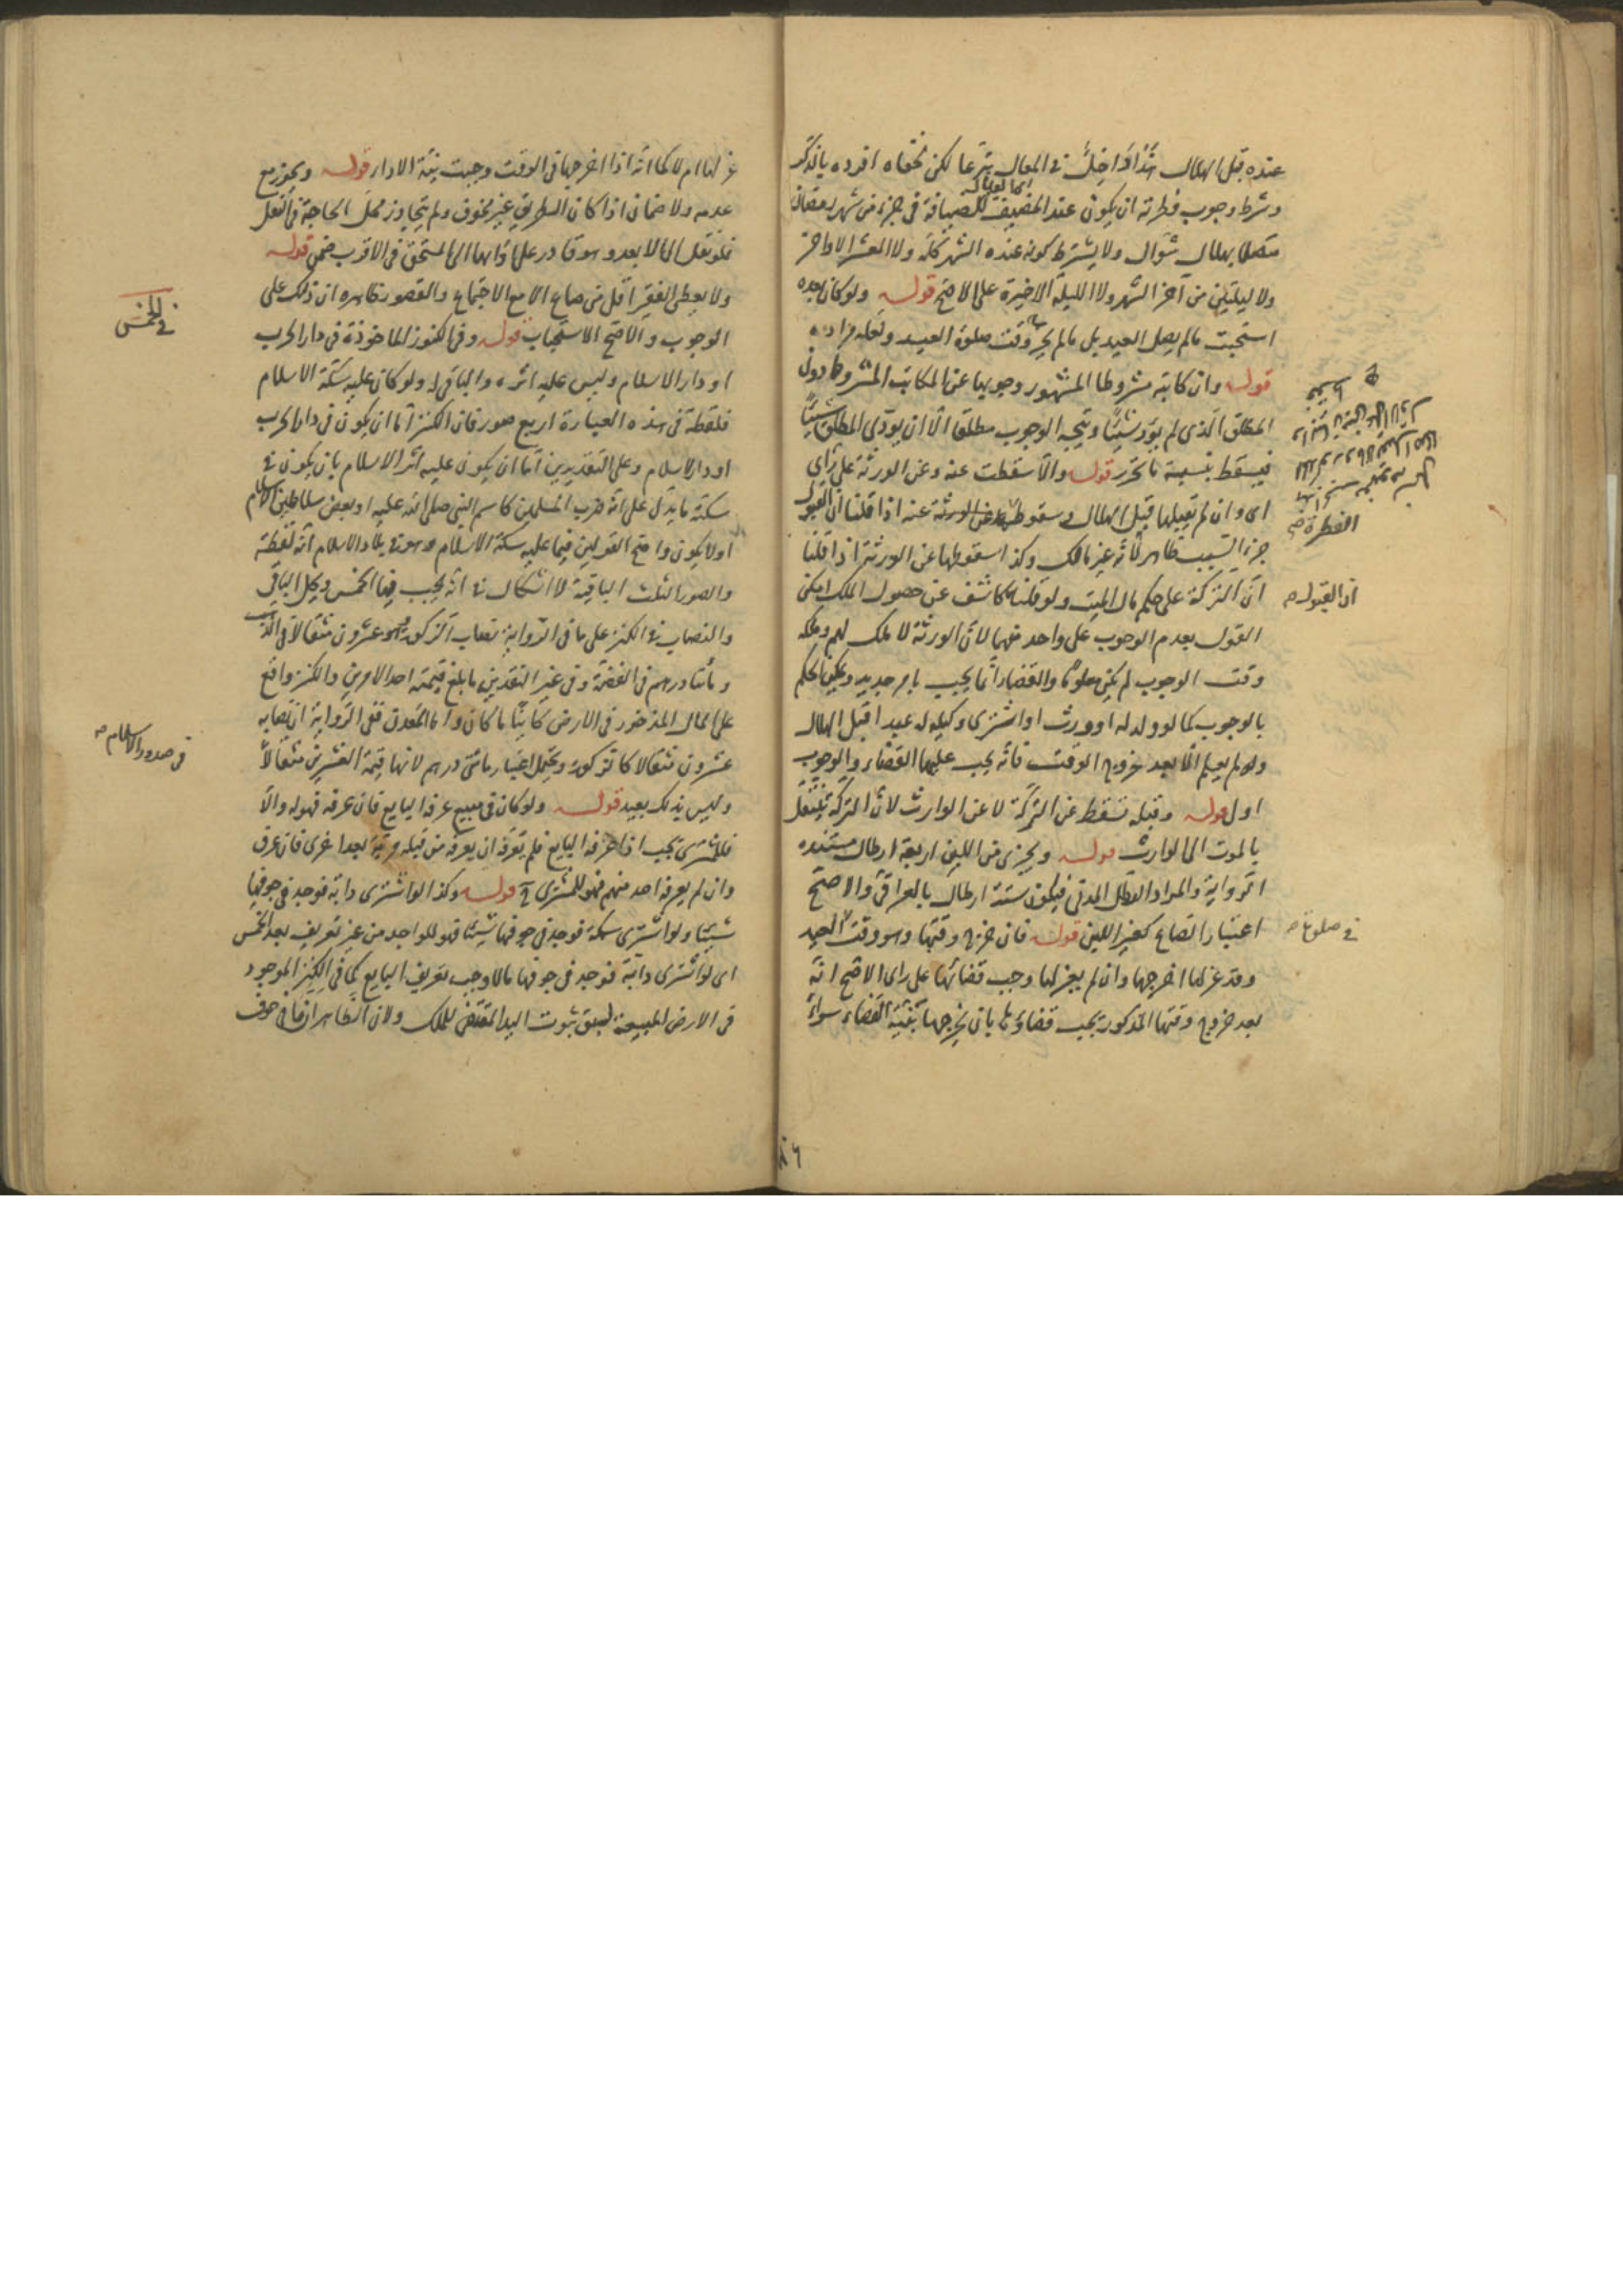 عنده قبل الهلال هذا داخل في المعال تبرعا لكن لخفاه افرده بالذكر
وشرط وجوب فطرته ان يكون عند المضيف للضيافة في جزء من شهر رمضان
متصلا بهلال شوال ولا يشترط كونه عنده الشهر كله ولا العشر الاواخر
ولا ليلتين من آخر الشهر ولا الليلة الاخيرة على الاصح قوله ولو كان بعده
استحبت ما لم يصل العيد بل ما لم يخرج وقت صلوة العيد ولعله مراده
قوله وان كاتبه مشروطا المشهور وجوبها عن المكاتب المشروط دون
المطلق الذى لم يؤد شيئا ويتجه الوجوب مطلقا الا ان يؤدى المطلق شيئا
فيسقط بنسبة ما تحرر قوله والا سقطت عنه وعن الورثة على راى
اى وان لم يقبلها قبل الهلال وسقوطها عن الورثة عنه اذا قلنا ان القبول
جزء السبب ظاهر لأنه غير مالك وكذا سقوطها عن الورثة اذا قلنا
ان التركة على حكم مال الميت ولو قلنا كاشف عن حصول الملك امكن
القول بعدم الوجوب على واحد منهما لان الورثة لا ملك لهم وملكه
وقت الوجوب لم يكن معلوما والقضاء انما يجب بامر جديد ويمكن الحكم
بالوجوب كما لو ولد له او ورث او اشترى وكيله له عبدا قبل الهلال
ولم يعلم الا بعد خروج الوقت فانه يجب عليهما القضاء والوجوب
اولى قوله وقبله تسقط عن التركة لا عن الوارث لان التركة تنتقل
بالموت الى الوارث قوله ويجزى من اللبن اربعة ارطال مستنده
الرواية والمراد الرطل المدنى فيكون ستة ارطال بالعراقى والاصح
اعتبار الصاع كغير اللبن قوله فان خرج وقتها وهو وقت العيد
وقد عزلها اخرجها وان لم يعزلها وجب قضائها على راى الاصح انه
بعد خروج وقتها المذكور يجب قضاؤها بان يخرجها بنية القضاء سواء
الفطرة صح
ان القبول صح
في صلوة صح
٨٦
عزلها ام لا كما انه اذا اخرجها في الوقت وجبت نية الاداء قوله ويجوز مع
عدمه ولا ضمان اذا كان الطريق غير مخوف ولم يتجاوز محل الحاجة في النقل
فلو نقل الى الابعد وهو قادر على ادائها الى المستحق في الاقرب ضمن قوله
ولا يعطى الفقير اقل من صاع الا مع الاجتماع والقصور ظاهره ان ذلك على
الوجوب والاصح الاستحباب قوله وفى الكنوز الماخوذة فى دار الحرب
او دار الاسلام وليس عليه اثره والباقى له ولو كان عليه سكة الاسلام
فلقطة فى هذه العبارة اربع صور فان الكنز اما ان يكون فى دار الحرب
او دار الاسلام وعلى التقديرين اما ان يكون عليه اثر الاسلام بان يكون في
سكته ما يدل على انه ضرب المسلمين كاسم النبى صلى الله عليه او بعض سلاطين الاسلام
او لا يكون واصح القولين فيما عليه سكة الاسلام وهو في بلاد الاسلام انه لقطة
والصور الثلث الباقية لا اشكال في انه يجب فيها الخمس ويحل الباقى
والنصاب في الكنز على ما فى الرواية نصاب الزكوة وهو عشرون مثقالا فى الذهب
ومأتا درهم فى الفضة وفى غير النقدين ما بلغ قيمته احد الامرين والكنز واقع
على المال المذخور فى الارض كائنا ما كان واما المعدن ففى الرواية ان نصابه
عشرون مثقالا كالزكوة ويحتمل اعتبار مائتى درهم لانها قيمة العشرين مثقالا
وليس ذلك ببعيد قوله ولو كان فى مبيع عرفه البايع فان عرفه فهو له والا
فللمشترى يجب اذا عرفه البايع فلم يعرفه ان يعرفه من قبله مرتبة بعد اخرى فان عرف
وان لم يعرفه احد منهم فهو للمشترى قوله وكذا لو اشترى دابة فوجد فى جوفها
شيئا ولو اشترى سمكة فوجد فى جوفها شيئا فهو للواجد من غير تعريف بعد الخمس
اى لو اشترى دابة فوجد فى جوفها مالا وجب تعريف البايع كما فى الكنز الموجود
فى الارض المبيعة لسبق ثبوت اليد المقتضى للملك ولان الظاهر ان ما فى جوف
في الخمس